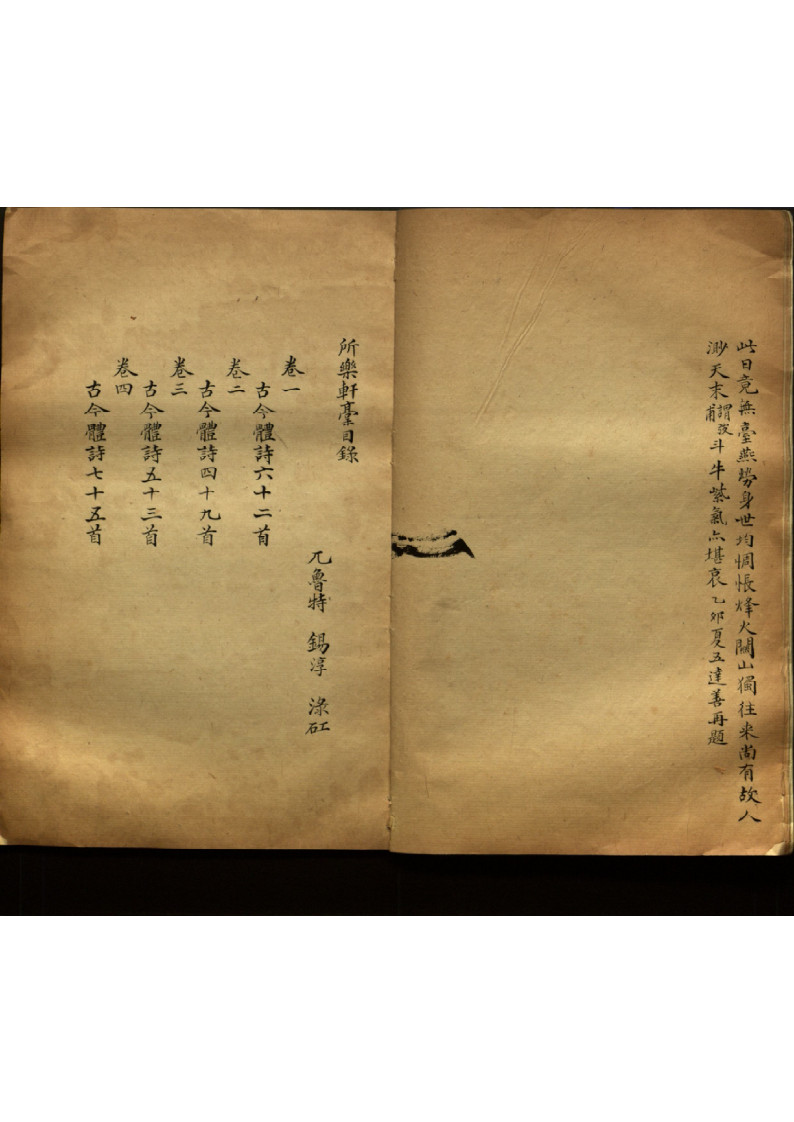 此日竟無臺燕勢身世均惆悵烽火關山獨往來尚有故人
渺天末謂汲甫斗牛紫氣亦堪哀乙卯夏五達善再題
所樂軒藁目錄
兀魯特 錫淳 淥矼
卷一
古今體詩六十二首
卷二
古今體詩四十九首
卷三
古今體詩五十三首
卷四
古今體詩七十五首